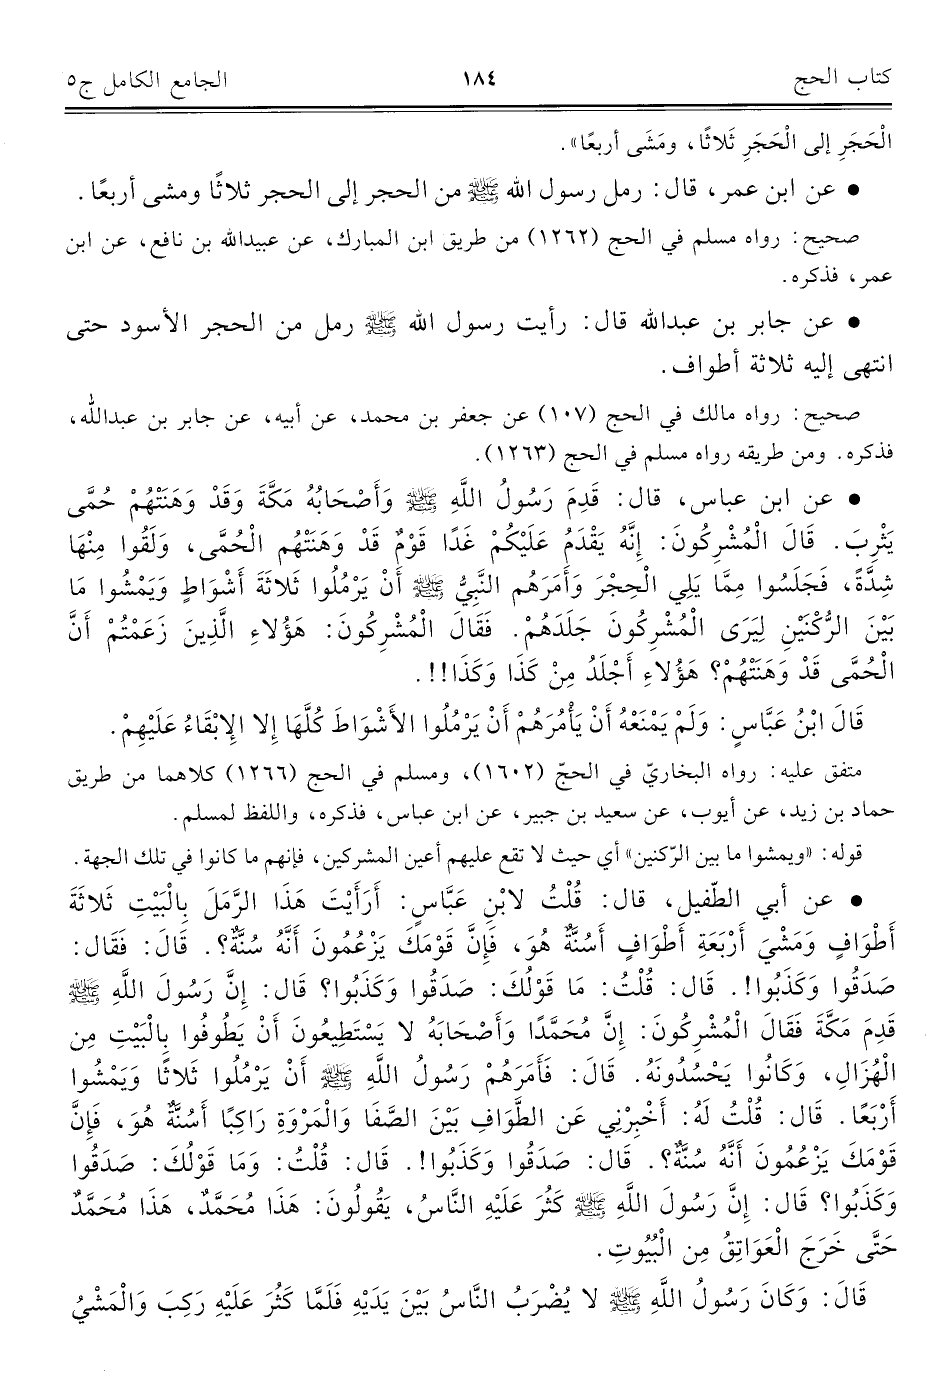 كتاب الحج ١٨٤ الجامع الكامل ج٥
الْحَجَرِ إلى الْحَجَرِ ثَلاثًا، ومَشَى أربعًا».
• عن ابن عمر، قال: رمل رسول الله ﷺ من الحجر إلى الحجر ثلاثًا ومشى أربعًا.
صحيح: رواه مسلم في الحج (١٢٦٢) من طريق ابن المبارك، عن عبيدالله بن نافع، عن ابن
عمر، فذكره.
• عن جابر بن عبدالله قال: رأيت رسول الله ﷺ رمل من الحجر الأسود حتى
انتهى إليه ثلاثة أطواف.
صحيح: رواه مالك في الحج (١٠٧) عن جعفر بن محمد، عن أبيه، عن جابر بن عبدالله،
فذكره. ومن طريقه رواه مسلم في الحج (١٢٦٣).
• عن ابن عباس، قال: قَدِمَ رَسُولُ اللَّهِ ﷺ وَأَصْحَابُهُ مَكَّةَ وَقَدْ وَهَنَتْهُمْ حُمَّى
يَثْرِبَ. قَالَ الْمُشْرِكُونَ: إِنَّهُ يَقْدَمُ عَلَيْكُمْ غَدًا قَوْمٌ قَدْ وَهَنَتْهُم الْحُمَّى، وَلَقُوا مِنْهَا
شِدَّةً، فَجَلَسُوا مِمَّا يَلِي الْحِجْرَ وَأَمَرَهُم النَّبِيُّ ﷺ أَنْ يَرْمُلُوا ثَلاثَةَ أَشْوَاطٍ وَيَمْشُوا مَا
بَيْنَ الرُّكْنَيْنِ لِيَرَى الْمُشْرِكُونَ جَلَدَهُمْ. فَقَالَ الْمُشْرِكُونَ: هَؤُلاءِ الَّذِينَ زَعَمْتُمْ أَنَّ
الْحُمَّى قَدْ وَهَنَتْهُمْ؟ هَؤُلاءِ أَجْلَدُ مِنْ كَذَا وَكَذَا!!.
قَالَ ابْنُ عَبَّاسٍ: وَلَمْ يَمْنَعْهُ أَنْ يَأْمُرَهُمْ أَنْ يَرْمُلُوا الأَشْوَاطَ كُلَّهَا إِلا الإِبْقَاءُ عَلَيْهِمْ.
متفق عليه: رواه البخاريّ في الحجّ (١٦٠٢)، ومسلم في الحج (١٢٦٦) كلاهما من طريق
حماد بن زيد، عن أيوب، عن سعيد بن جبير، عن ابن عباس، فذكره، واللفظ لمسلم.
قوله: «ويمشوا ما بين الرّكنين» أي حيث لا تقع عليهم أعين المشركين، فإنهم ما كانوا في تلك الجهة.
• عن أبي الطّفيل، قال: قُلْتُ لابْنِ عَبَّاسٍ: أَرَأَيْتَ هَذَا الرَّمَلَ بِالْبَيْتِ ثَلاثَةَ
أَطْوَافٍ وَمَشْيَ أَرْبَعَةِ أَطْوَافٍ أَسُنَّةٌ هُوَ، فَإِنَّ قَوْمَكَ يَزْعُمُونَ أَنَّهُ سُنَّةٌ؟. قَالَ: فَقَال:
صَدَقُوا وَكَذَبُوا!. قَال: قُلْتُ: مَا قَوْلُكَ: صَدَقُوا وَكَذَبُوا؟ قَال: إِنَّ رَسُولَ اللَّهِ ﷺ
قَدِمَ مَكَّةَ فَقَالَ الْمُشْرِكُونَ: إِنَّ مُحَمَّدًا وَأَصْحَابَهُ لا يَسْتَطِيعُونَ أَنْ يَطُوفُوا بِالْبَيْتِ مِن
الْهُزَالِ، وَكَانُوا يَحْسُدُونَهُ. قَال: فَأَمَرَهُمْ رَسُولُ اللَّهِ ﷺ أَنْ يَرْمُلُوا ثَلاثًا وَيَمْشُوا
أَرْبَعًا. قَال: قُلْتُ لَهُ: أَخْبِرْنِي عَن الطَّوَافِ بَيْنَ الصَّفَا وَالْمَرْوَةِ رَاكِبًا أَسُنَّةٌ هُوَ، فَإِنَّ
قَوْمَكَ يَزْعُمُونَ أَنَّهُ سُنَّةٌ؟. قَال: صَدَقُوا وَكَذَبُوا!. قَال: قُلْتُ: وَمَا قَوْلُكَ: صَدَقُوا
وَكَذَبُوا؟ قَال: إِنَّ رَسُولَ اللَّهِ ﷺ كَثُرَ عَلَيْهِ النَّاسُ، يَقُولُونَ: هَذَا مُحَمَّدٌ، هَذَا مُحَمَّدٌ
حَتَّى خَرَجَ الْعَوَاتِقُ مِن الْبُيُوتِ.
قَالَ: وَكَانَ رَسُولُ اللَّهِ ﷺ لا يُضْرَبُ النَّاسُ بَيْنَ يَدَيْهِ فَلَمَّا كَثُرَ عَلَيْهِ رَكِبَ وَالْمَشْيُ